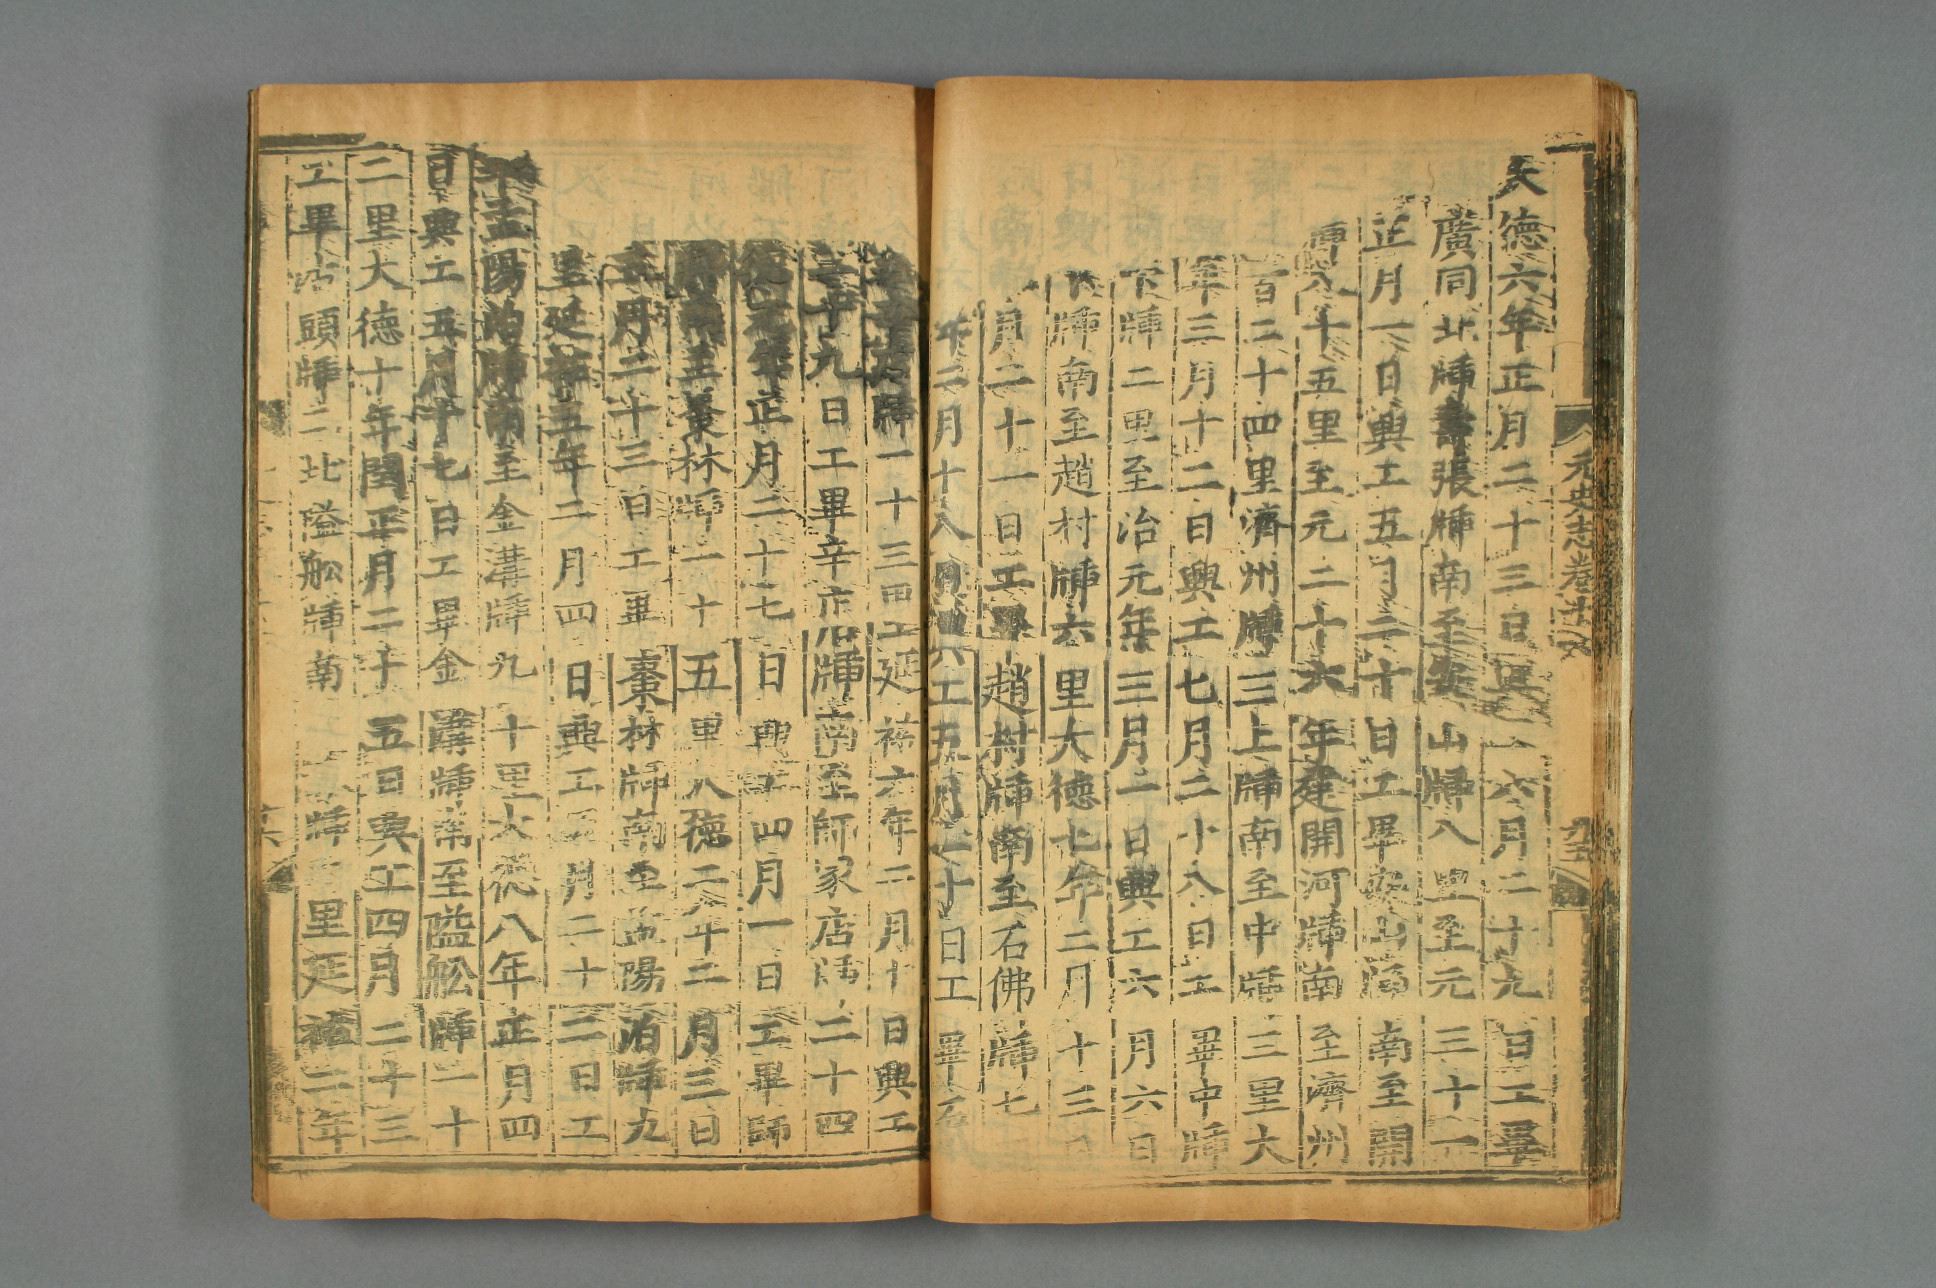 大德六年正月二十三日興工六月二十九日工畢
廣同北牐壽張牐南至安山牐八里至元三十一
正月一日興工五月二十日工畢安山牐南至開
牐八十五里至元二十六年建開河牐南至濟州
一百二十四里濟州牐三上牐南至中牐三里大
年三月十二日興工七月二十八日工畢中牐
下牐二里至治元年三月一日興工六月六日
下牐南至趙村牐六里大德七年二月十三日
月二十一日工畢趙村牐南至石佛牐七
年二月十八日興工五月二十日工畢石
牐一十三里延祐六年二月十日興工
二十九日工畢辛店牐南至師家店牐二十四
德二年正月二十七日興工四月一日工畢師
南至棗林牐一十五里大德二年二月三日
五月二十三日工畢棗林牐南至孟陽泊牐九
里延祐五年二月四日興工五月二十二日工
畢孟陽泊牐南至金溝牐九十里大德八年正月四
日興工五月十七日工畢金溝牐南至隘船牐一十
二里大德十年閏正月二十五日興工四月二十三
工畢沽頭牐二北隘船牐南至下牐二里延祐二年
元史志卷十六